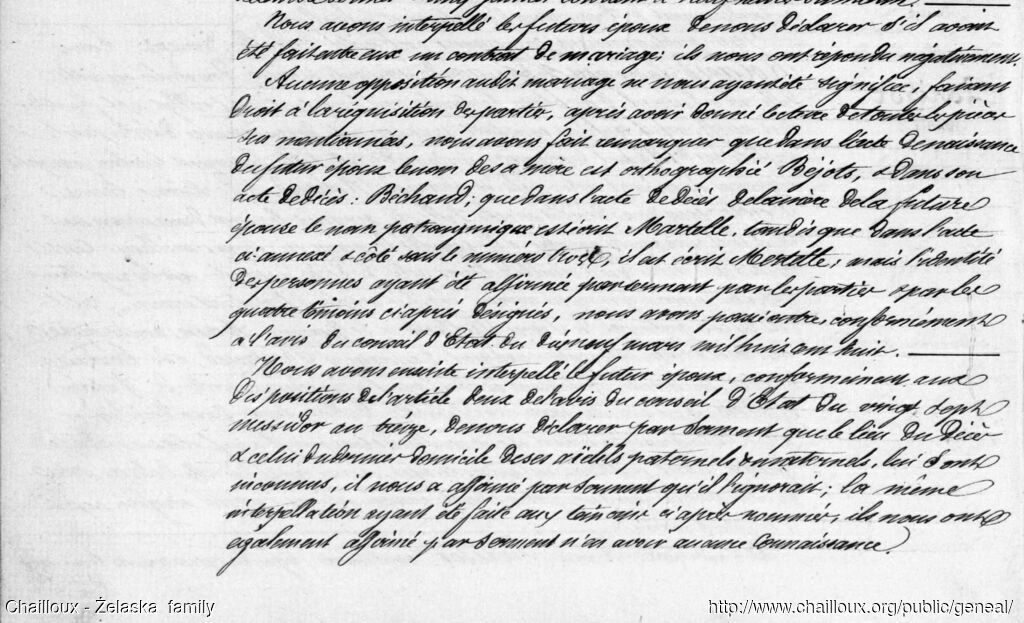 Nous avons interpellé les futurs époux de nous déclarer s'il avait
été fait entre eux un contrat de mariage; ils nous ont répondu négativement.
Aucune opposition audit mariage ne nous ayant été signifiée; faisant
droit à la réquisition des parties, après avoir donné lecture de toutes les pièces
sus mentionnées, nous avons fait remarquer que dans l'acte de naissance
du futur époux le nom de sa mère est orthographié Béjots, & dans son
acte de décès: Béchaud; que dans l'acte de décès de la mère de la future
épouse le nom patronymique est écrit Martelle, tandis que dans l'acte
ci annexé & côté sous le numéro trois, il est écrit Mertelle; mais l'identité
des personnes ayant été affirmée par serment par les parties & par les
quatre témoins ci après désignés, nous avons passé outre, conformément
a l'avis du conseil d'Etat du dix neuf mars mil huit cent huit.
Nous avons ensuite interpellé le futur époux, conformément aux
dispositions de l'article deux de l'avis du conseil d'Etat du vingt sept
messidor an treize, de nous déclarer par serment que le lieu du décès
& celui du dernier domicile de ses aïeuls paternels & maternels, lui sont
inconnus, il nous a affirmé par serment qu'il l'ignorait; la même
interpellation ayant été faite aux témoins ci après nommés, ils nous ont
également affirmé par serment n'en avoir aucune connaissance.
Chailloux - Żelaska family
http://www.chailloux.org/public/geneal/